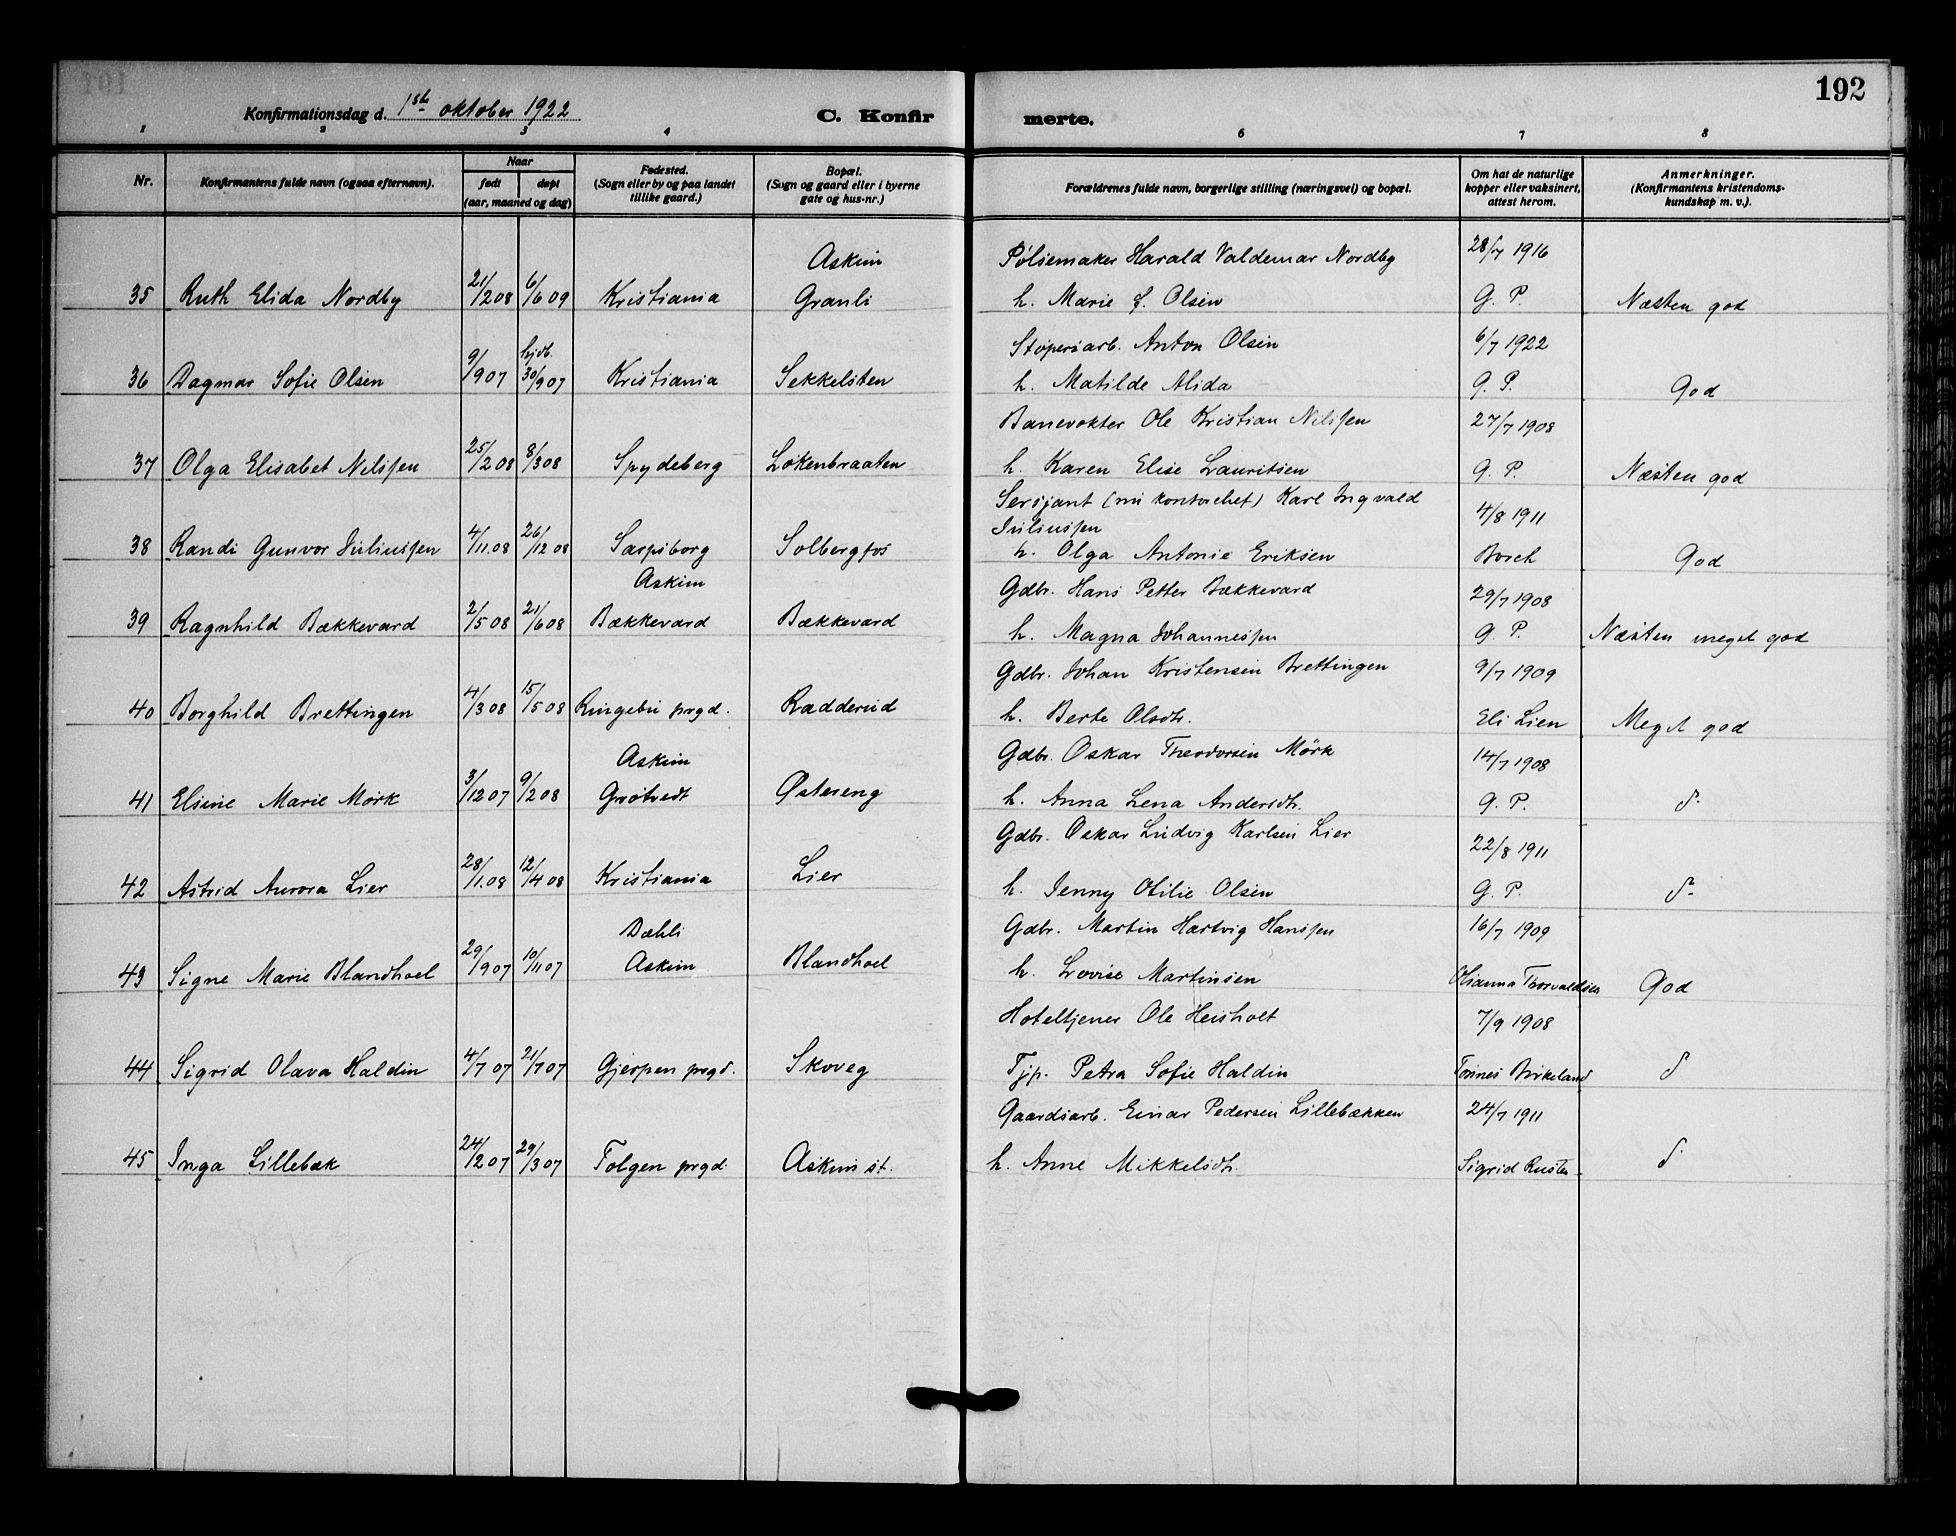 192
Konfirmationsdag d. 1ste oktober 1922 C. Konfir merte.
1 2 3 4 6 7 8
Nr. Konfirmantens fulde navn (ogsaa efternavn). Naar født døpt (aar, maaned og dag) Fødested. (Sogn eller by og paa landet tillike gaard.) Bopæl. (Sogn og gaard eller i byerne gate og hus-nr.) Forældrenes fulde navn, borgerlige stilling (næringsvei) og bopæl. Om hat de naturlige kopper eller vaksinert, attest herom. Anmerkninger. (Konfirmantens kristendoms-kundskap m. v.).
Askim Pølsemaker Harald Valdemar Nordby 28/7 1916
35 Ruth Elida Nordby 21/2 08 6/6 09 Kristiania Granli h. Marie J. Olsen G. P. Næsten god
hjdb. Støperiarb. Anton Olsen 6/7 1922
36 Dagmar Sofie Olsen 9/9 07 30/9 07 Kristiania Sekkelsten h. Matilde Alida G. P. God
Banevokter Ole Kristian Nilssen 27/7 1908
37 Olga Elisabet Nilssen 25/2 08 8/3 08 Spydeberg Løkenbraaten h. Karen Elise Lauritsen G. P. Næsten god
Sersjant (nu kontorchef) Karl Ingvald
Juliussen 4/8 1911
38 Randi Gunvor Juliussen 4/11 08 26/12 08 Sarpsborg Solbergfos h. Olga Antonie Eriksen Borch God
Askim Gdbr. Hans Petter Bækkevard 29/7 1908
39 Ragnhild Bækkevard 2/5 08 21/6 08 Bækkevard Bækkevard h. Magna Johannessen G. P. Næsten meget god
Gdbr. Johan Kristensen Brettingen 9/7 1909
40 Borghild Brettingen 4/3 08 15/5 08 Ringebu prgd. Radderud h. Berte Olsdtr. Eli Lien Meget god
Askim Gdbr. Oskar Theodorsen Mørk 14/7 1908
41 Elsine Marie Mørk 3/12 07 9/2 08 Grøtvedt Østereng h. Anna Lena Andersdtr. G. P. d.
Gdbr. Oskar Ludvig Karlsen Lier 22/8 1911
42 Astrid Aurora Lier 28/1 08 12/4 08 Kristiania Lier h. Jenny Otilie Olsen G. P. d.
Dæhli Gdbr. Martin Hartvig Hanssen 16/7 1909
43 Signe Marie Blandhoel 29/9 07 10/11 07 Askim Blandhoel h. Lovise Martinsen Olianna Thorvaldsen God
Hoteltjener Ole Heisholt 7/9 1908
44 Sigrid Olava Haldin 4/7 07 21/7 07 Gjerpen prgd. Skoveg Tjp. Petra Sofie Haldin Tønnes Birkeland d
Gaardsarb. Einar Pedersen Lillebækken 24/7 1911
45 Inga Lillebæk 24/2 07 29/3 07 Tolgen prgd. Askim st. h. Anne Mikkelsdtr. Sigrid Rusten d.